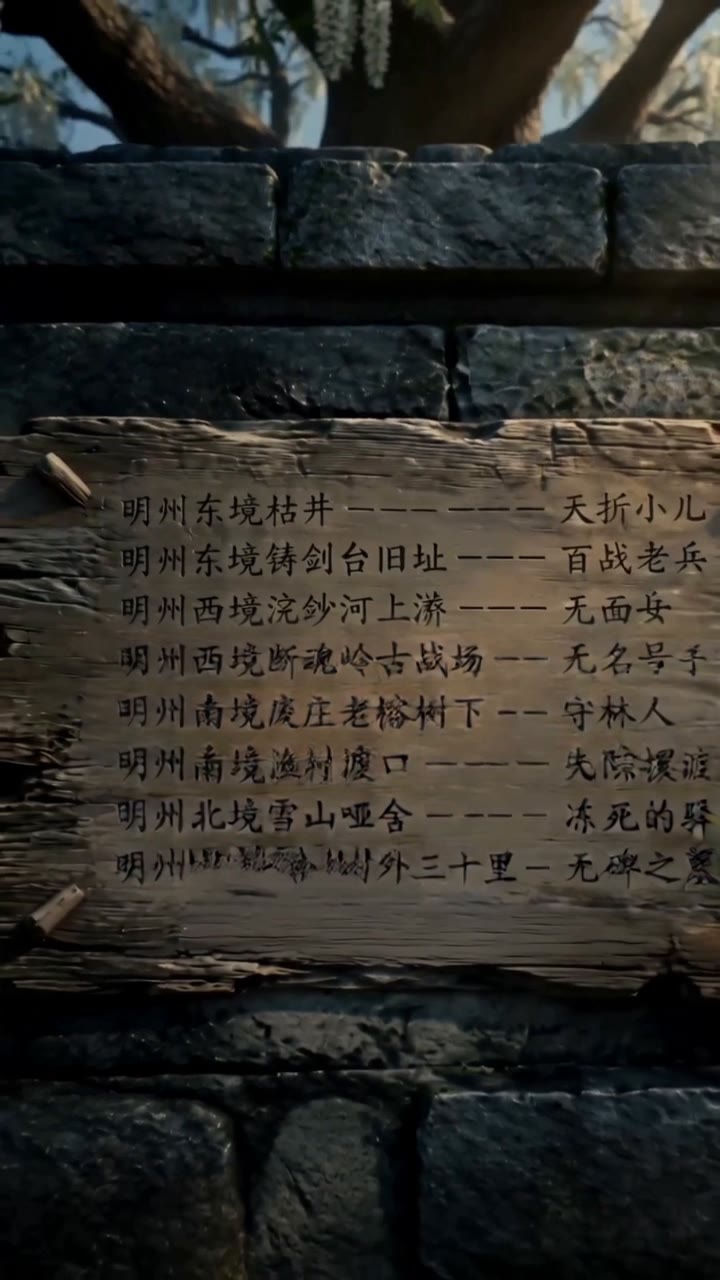 明州东境枯井 —————— 天折小儿
明州东境铸剑台旧址 ——— 百战老兵
明州西境浣 河上游 ——— 无面女
明州西境断魂岭古战场 —— 无名号手
明州南境废庄老榕树下 —— 守林人
明州南境渔村渡口 ———— 失
明州北境雪山哑舍 ———— 冻死的驿
明州 外三十里 — 无碑之墓